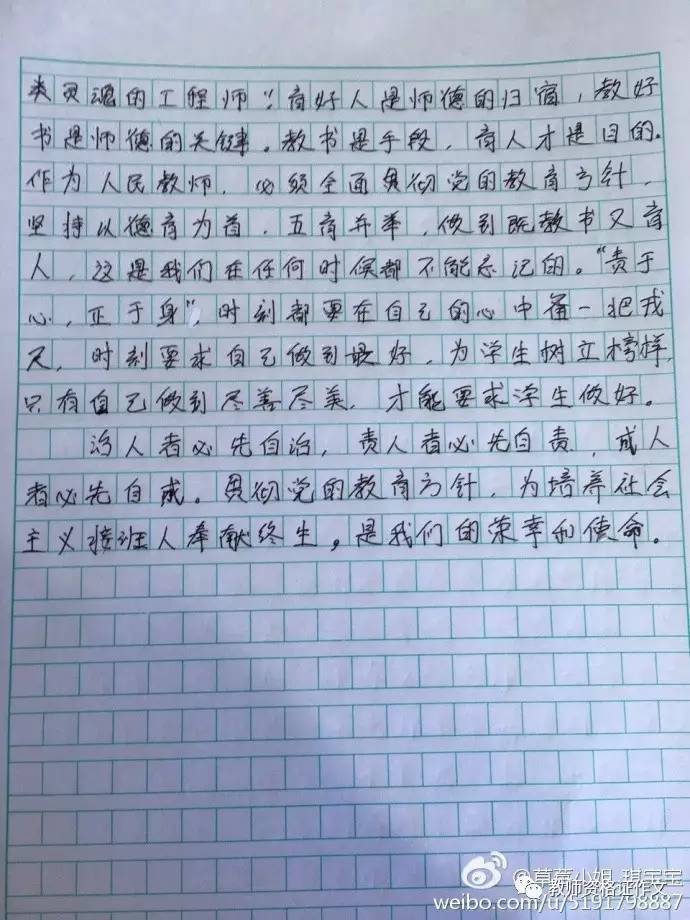 类灵魂的工程师"。育好人是师德的归宿，教好
书是师德的关键。教书是手段，育人才是目的。
作为人民教师，必须全面贯彻党的教育方针，
坚持以德育为首，五育并举，做到既教书又育
人，这是我们在任何时候都不能忘记的。"责于
心，正于身"，时刻都要在自己的心中备一把戒
尺，时刻要求自己做到最好，为学生树立榜样，
只有自己做到尽善尽美，才能要求学生做好。
治人者必先自治，责人者必先自责，成人
者必先自成。贯彻党的教育方针，为培养社会
主义接班人奉献终生，是我们的荣幸和使命。
教师资格证作文
weibo.com/u/5191798887